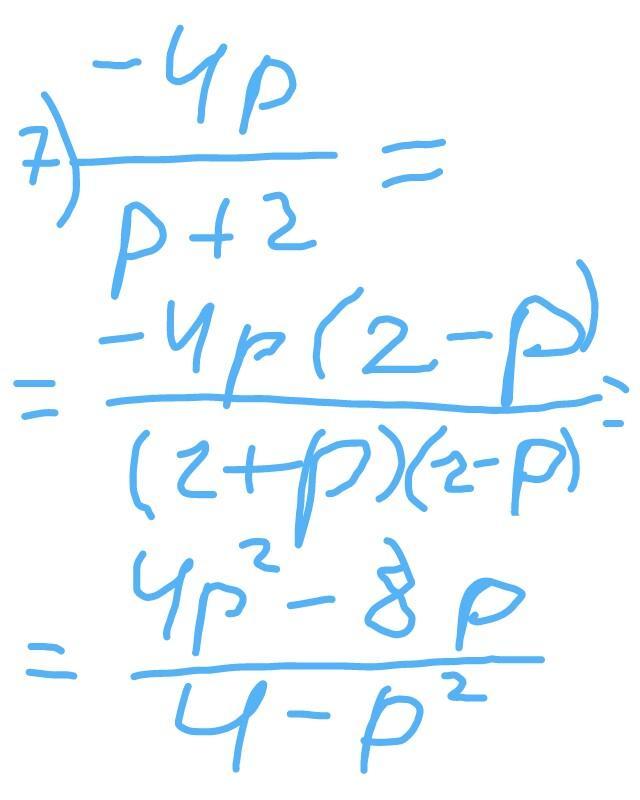 7) -4p
p + 2 =
= -4p(2-p)
(2+p)(2-p) =
= 4p² - 8p
4 - p²